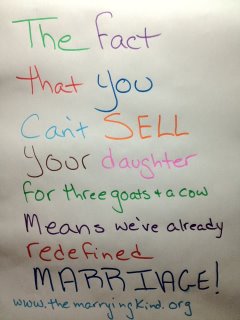 The Fact
that you
Can't SELL
Your daughter
for three goats + a cow
Means we've already
redefined
MARRIAGE!
www.themarryingkind.org